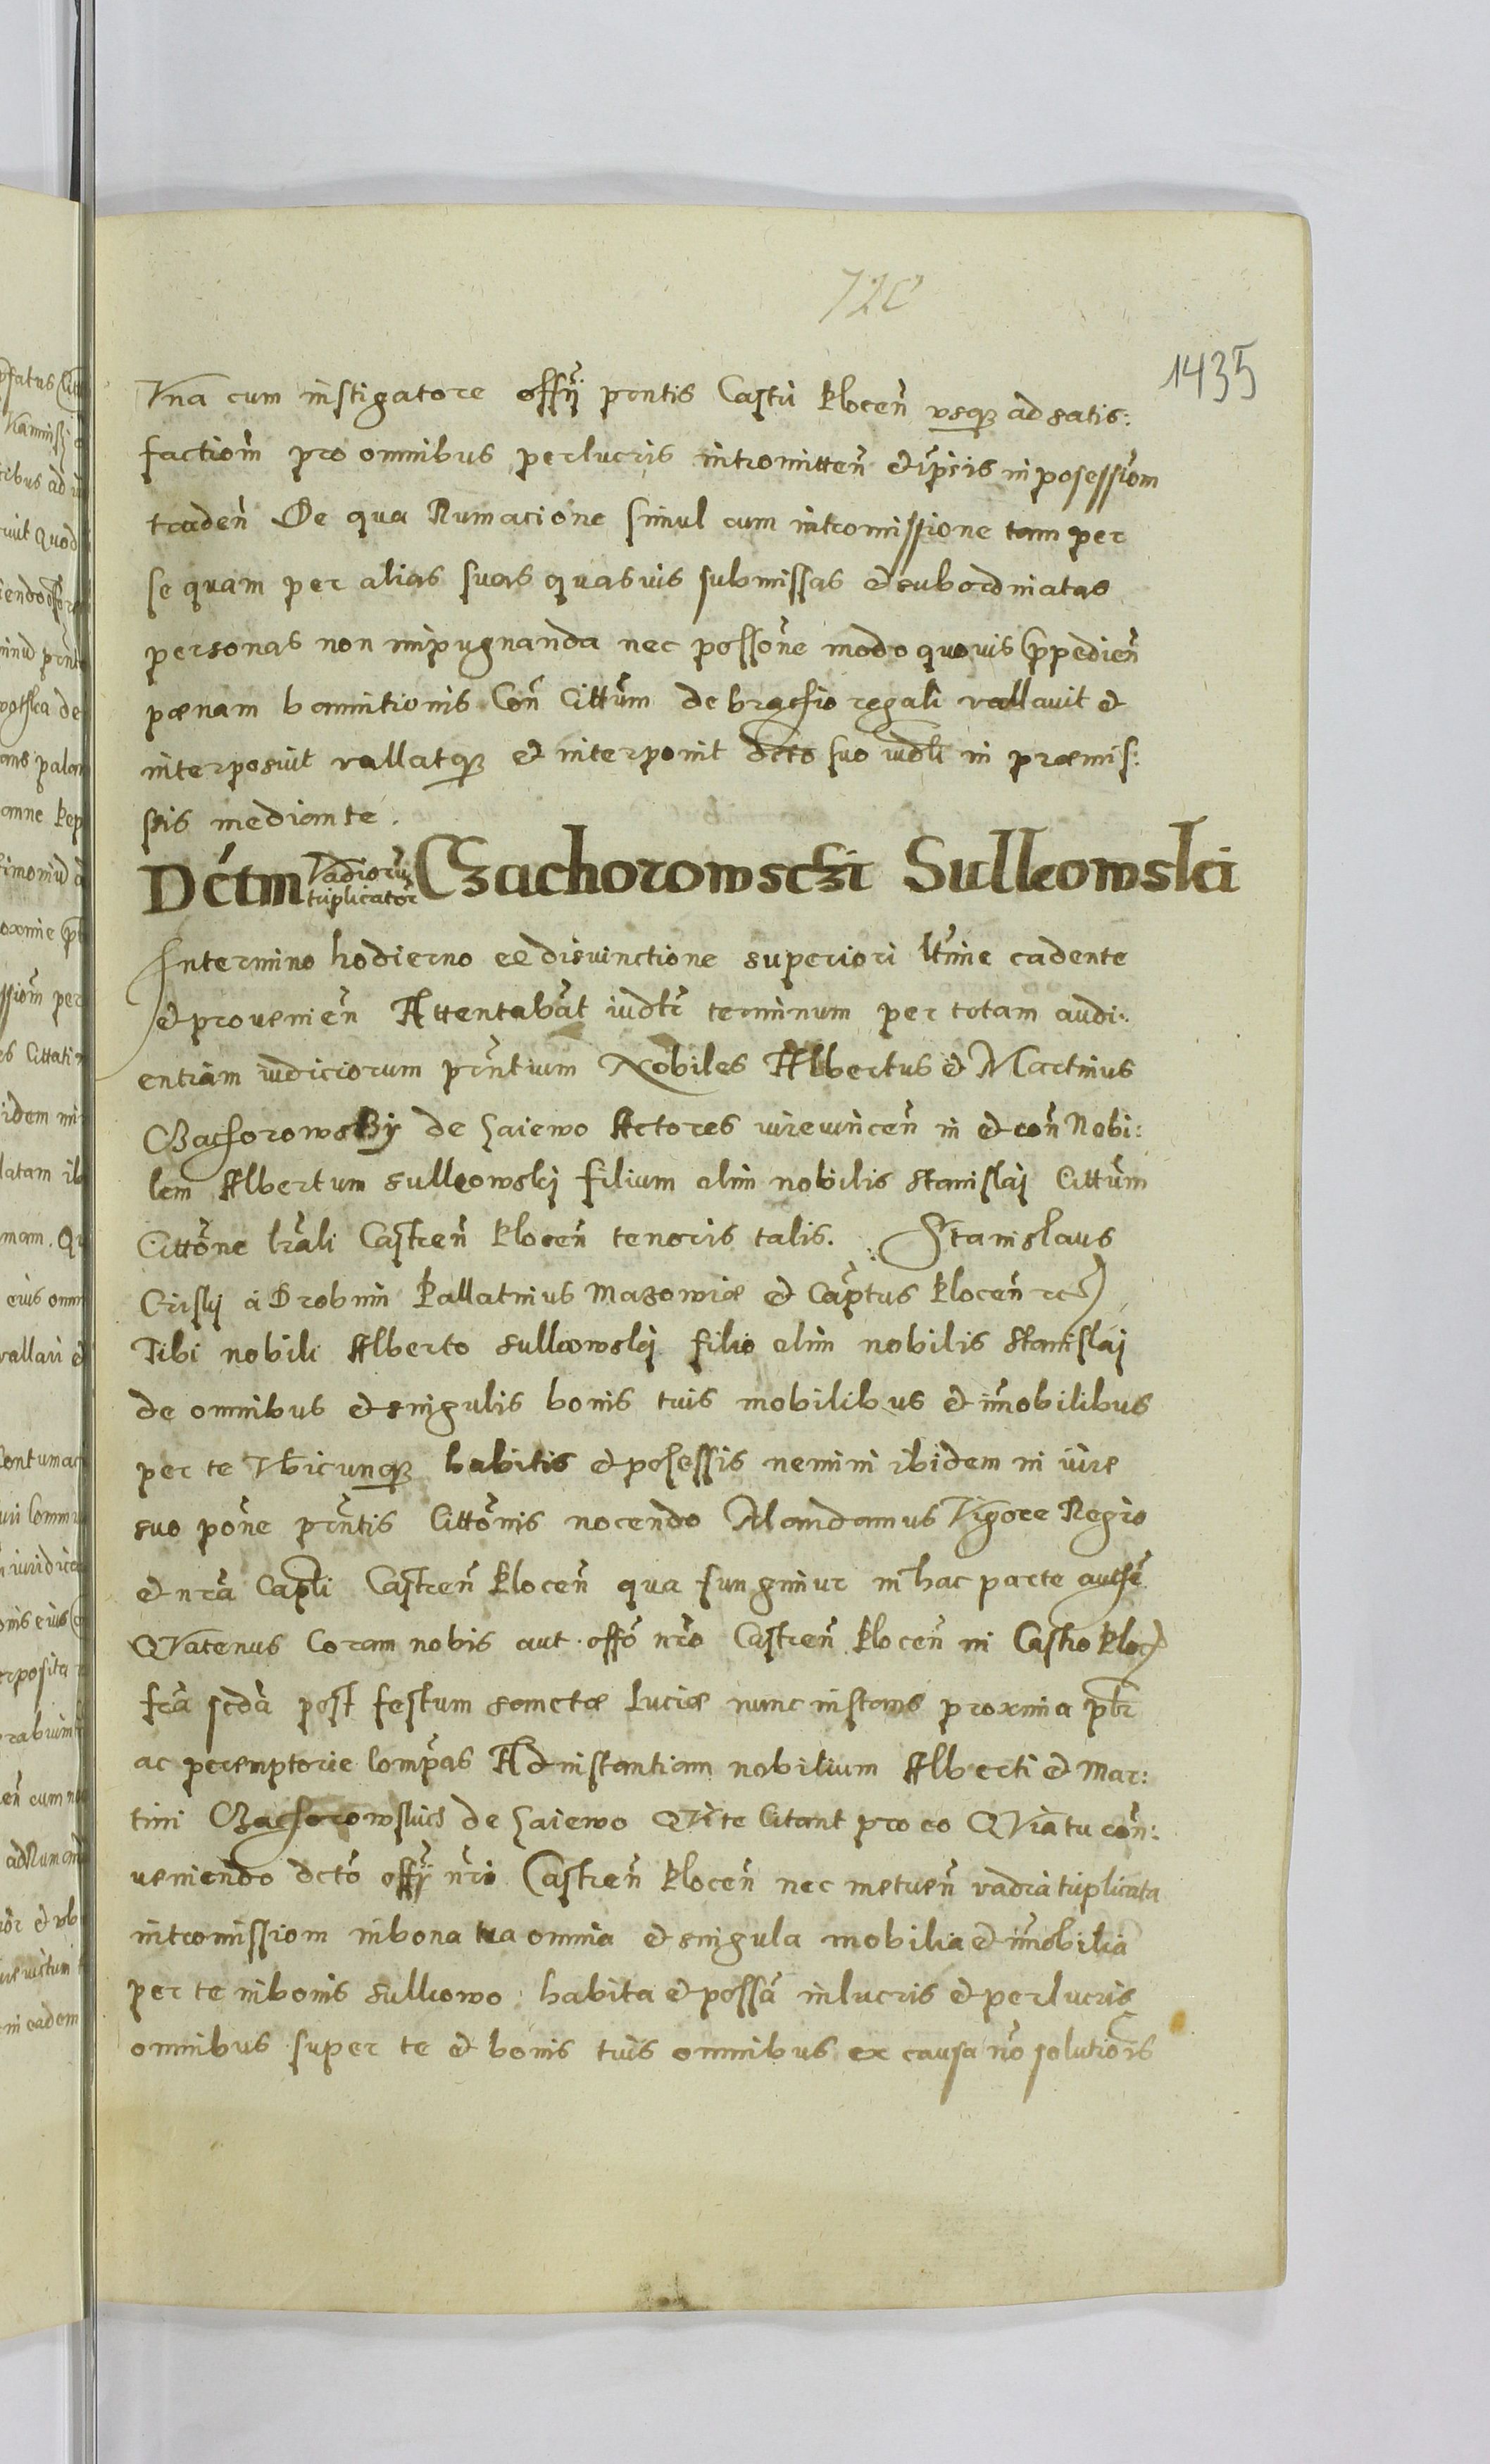 720
1435
Vna cum instigatore offÿ prntis Castri Plocen̄ vsq3 ad satis:
factiom̄ pro omnibus perlucris intromitten̄ et ip̄sis in posessiom̄
traden̄ De qua Rumacione simul cum intromissione tam per
se quam per alias suas quasuis submissas et subordinatas
personas non impugnanda nec possōne modo quouis Exppedien̄
pœnam bannitionis Con̄ Cittūm de brachio regali vallauit et
interposuit vallatq3 et interponit dcto suo iudli in præmis:
sis mediante.
Dctm Vadiorū triplicator̄ Czachorowsczi Sulkowski
In termino hodierno ex disiunctione superiori ltīme cadente
et prouenien̄ Attentabāt iudlr̄ terminum per totam audi:
entiam iudiciorum prn̄tium Nobiles Albertus et Martinus
Czachorowsky de Haiewo Actores iurevincen̄ in et con̄ Nobi:
lem Albertum sulkowski filium olim nobilis Stanislai Cittūm
Cittōne lrāli Castren̄ Plocen̄ tenoris talis. Stanislaus
Criskj á Drobnin Pallatinus Mazowiæ et Cap̄tus Plocen̄ rc
Tibi nobili Alberto sulkowskj filio olim nobilis Stanislai
de omnibus et singulis bonis tuis mobilibus et im̄obilibus
per te Vbicunq3 habitis et posessis nemini ibidem in iure
suo pōne prn̄tis Cittōnis nocendo Mandamus Vigore Regio
et nrā Capli Castren̄ Plocen̄ qua fungimur in hac parte authē
QVatenus Coram nobis aut offō nrō Castren̄ Plocen̄ in Castro Ploc
frā scdā post festum sanctæ Luciæ nunc instans proxima ptr̄
ac peremptorie Comp̄as Ad instantiam nobilium Alberti et Mar:
tini Czachorowskich de Haiewo QVi te Citant pro eo QVia tu con̄:
ueniendo dctō offÿ nr̄i Castren̄ Plocen̄ nec metuen̄ vadia triplicata
intromissiom in bona tua omnia et singula mobilia et im̄obilia
per te in bonis sulkowo habita et possā in lucris et perlucris
omnibus super te et bonis tuis omnibus ex causa nō solutiois